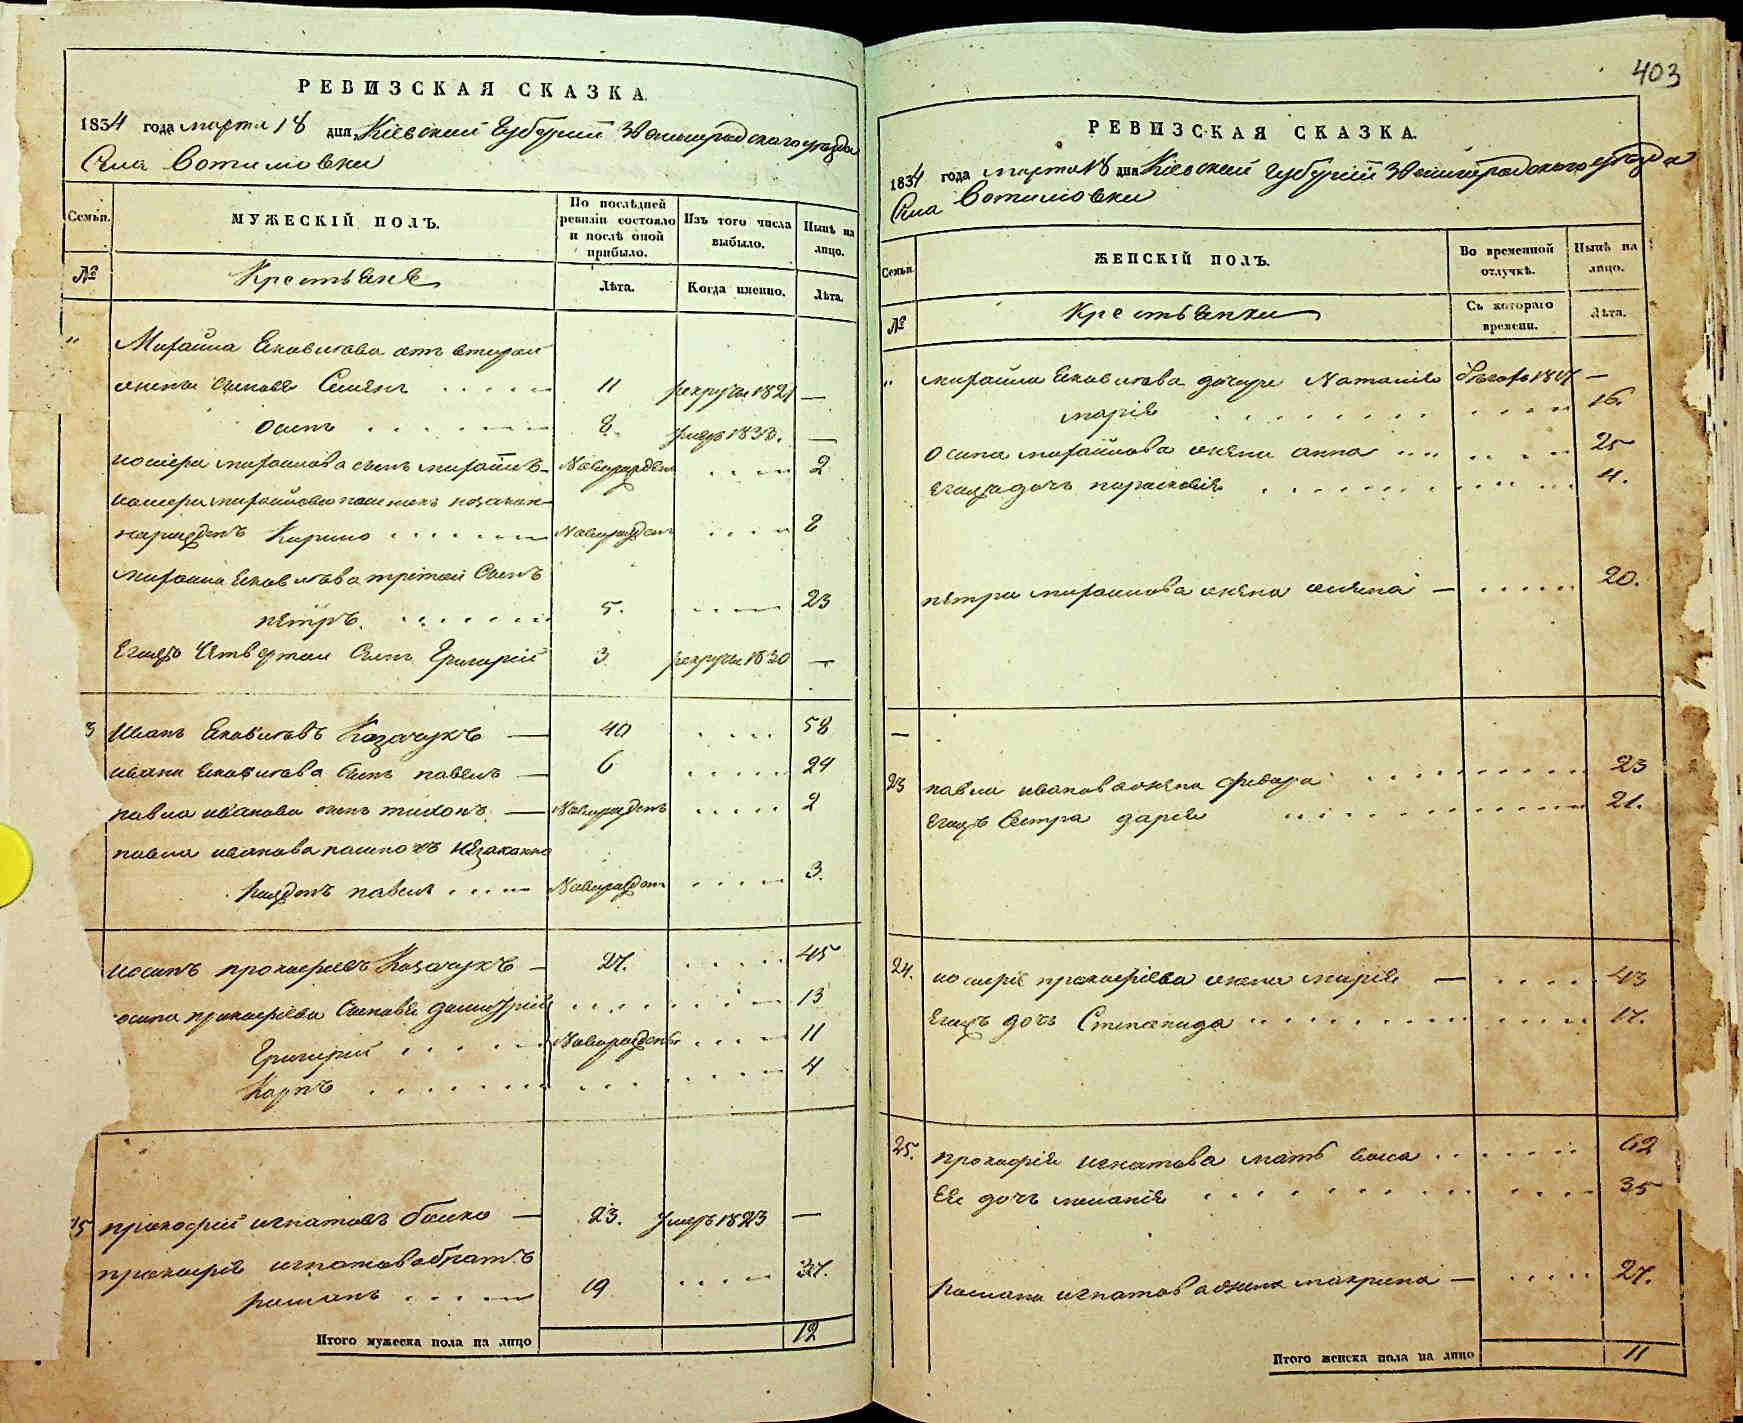 РЕВИЗСКАЯ СКАЗКА.
1834 года марта 18 дня, Кіевской Губерніи Звенигородского уезда
Села Сотниковки
Семьи.
МУЖЕСКІЙ ПОЛЪ.
По послѣдней ревизіи состояло и послѣ оной прибыло.
Изъ того числа выбыло.
Нынѣ на лицо.
№
Крестьяне
Лѣта.
Когда именно.
Лѣта.
" Михайла Яковлева отъ второй
жены сыновья Семенъ 11 рекрутъ 1821 —
Осипъ 8 умеръ 1832. —
сынъ Новорожденъ 2
нарожденъ Новорожденъ 8
Михайла Яковлева третий Сынъ
петръ 5. 23
Егожъ Четвертый Сынъ Григорій 3 рекрутъ 1830 —
3 Иванъ Яковлевъ Казачукъ — 40 58
ивана Яковлева Сынъ павелъ — 6 24
павла иванова сынъ тихонъ — Новорожденъ 2
павла иванова незаконно
рожденъ павелъ Новорожденъ 3.
иосипъ прокофиевъ Казачукъ — 27. 45
осипа прокофіева Сыновья димитрій 13
Григорій Новорожденъ 11
Карпъ 4
15 прокофій игнатовъ бойко — 23. умеръ 1823 —
прокофія игнатова братъ
романъ 19 37.
Итого мужеска пола на лицо 12
403
РЕВИЗСКАЯ СКАЗКА.
1834 года марта 18 дня Кіевской Губерній Звенигородского уезда
Села Сотниковки
Семьи.
ЖЕНСКІЙ ПОЛЪ.
Во временной отлучкѣ.
Нынѣ на лицо.
№
Крестьянки
Съ котораго времени.
Лѣта.
" михайла Яковлева дочери Наталія —
марія 16.
Осипа михайлова жена анна 25
Егожъ дочь парасковія 4.
петра михайлова жена — 20.
—
23 павла иванова жена федора 23
Егожъ Сестра дарія 21.
24. иосифа прокофіева жена марія — 43
Егожъ дочь Степанида 17.
25. прокофія игнатова мать 62
Ея дочь меланія 35
романа игнатова жена макрина — 27.
Итого женска пола на лицо 11